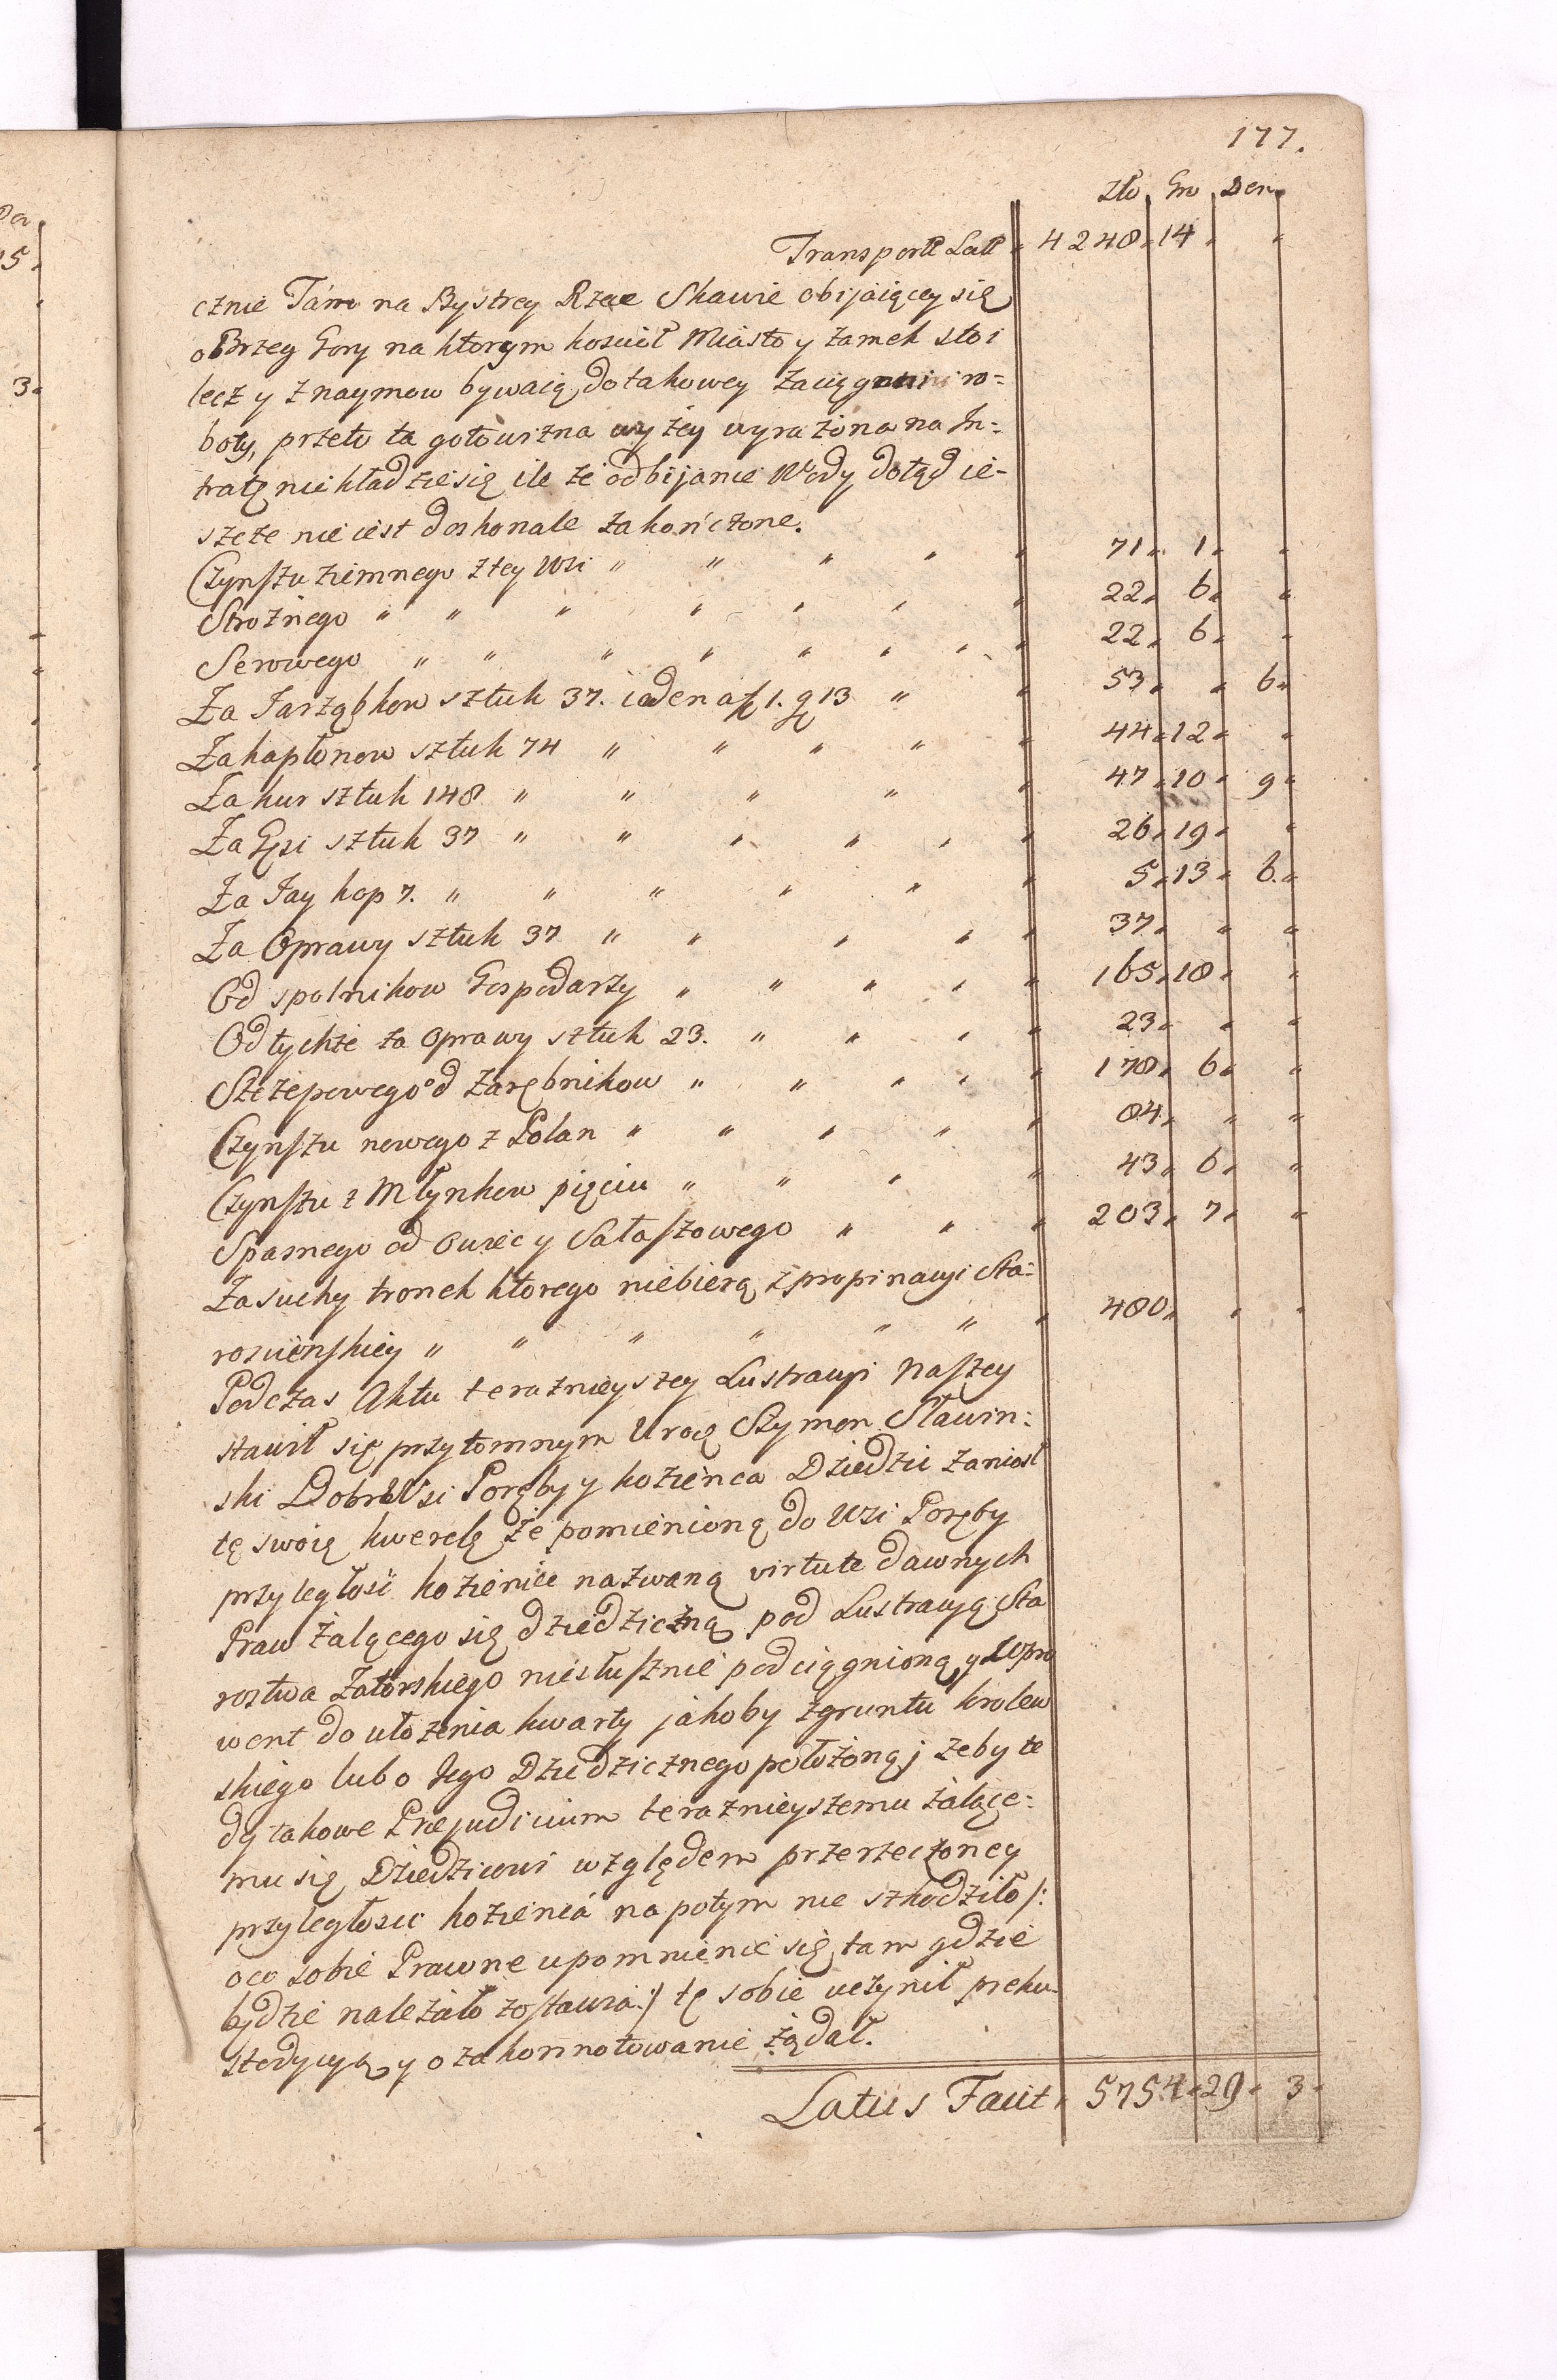 177.
Zło Gro Den
Transport Lat „ 4248 „ 14 „ „
cznie Tám na Bystrey Rzece Skawie obijaiącey się
o Brzeg Gory na ktorym kościół Miasto y Zamek stoi
lecz y z naymow bywaią do takowey zaciągnieni ro=
boty, przeto ta gotowizna wyżey wyrażona na In=
tratę nie kładzie się ile że odbijanie Wody dotąd ie=
szcze nie iest doskonale zakończone.
Czynszu ziemnego z tey Wsi „ „ „ „ „ 71 „ 1 „ „
Strożnego „ „ „ „ „ „ „ 22 „ 6 „ „
Serowego „ „ „ „ „ „ „ „ 22 „ 6 „ „
Za Jarząbkow sztuk 37. ieden a f 1. g 13 „ „ 53 „ „ 6 „
Za kapłonow sztuk 74 „ „ „ „ „ 44 „ 12 „ „
Za kur sztuk 148 „ „ „ „ „ 47 „ 10 „ 9 „
Za Gęsi sztuk 37 „ „ „ „ „ „ 26 „ 19 „ „
Za Jay kop 7. „ „ „ „ „ „ 5 „ 13 „ 6 „
Za Oprawy sztuk 37 „ „ „ „ „ 37 „ „ „
Od spolnikow Gospodarzy „ „ „ „ „ 165 „ 18 „ „
Od tychże za oprawy sztuk 23. „ „ „ „ 23 „ „ „
Szczepowego od Zarębnikow „ „ „ „ „ 178 „ 6 „ „
Czynszu nowego z Polan „ „ „ „ „ 84 „ „ „
Czynszu z Młynkow pięciu „ „ „ „ 43 „ 6 „ „
Spasnego od owiec y Sałaszowego „ „ „ 203 „ 7 „ „
Za suchy tronek ktorego niebierą z propinacyi Sta=
rościńskiey „ „ „ „ „ „ „ 480 „ „ „
Podczas Aktu teraznieyszey Lustracyi Naszey
stawił się przytomnym Uroę Szymon Sławin=
ski Dobr Wsi Poręby y kozieńca Dziedzic zaniosł
tę swoię kwerelę że pomienioną do Wsi Poręby
przyległość kozieniec nazwaną virtute dawnych
Praw żalącego się dziedziczną pod Lustracyą Sta
rostwa Zatorskiego niesłusznie podciągnioną y Wpro
went do ułożenia kwarty jakoby z gruntu krolew
skiego lubo Jego Dziedzicznego położoną; żeby te
dy takowe Præjudicium teraznieyszemu żalące=
mu się Dziedzicowi względem przerzeczoney
przyległosci kozieńcá na potym nie szkodziło /:
oco sobie Prawne upomnienie się tam gdzie
będzie należało zostawia :/ tę sobie uczynił preku=
stodycyą y o zakonnotowanie żądał.
Latus Facit „ 5754 „ 29 „ 3 „